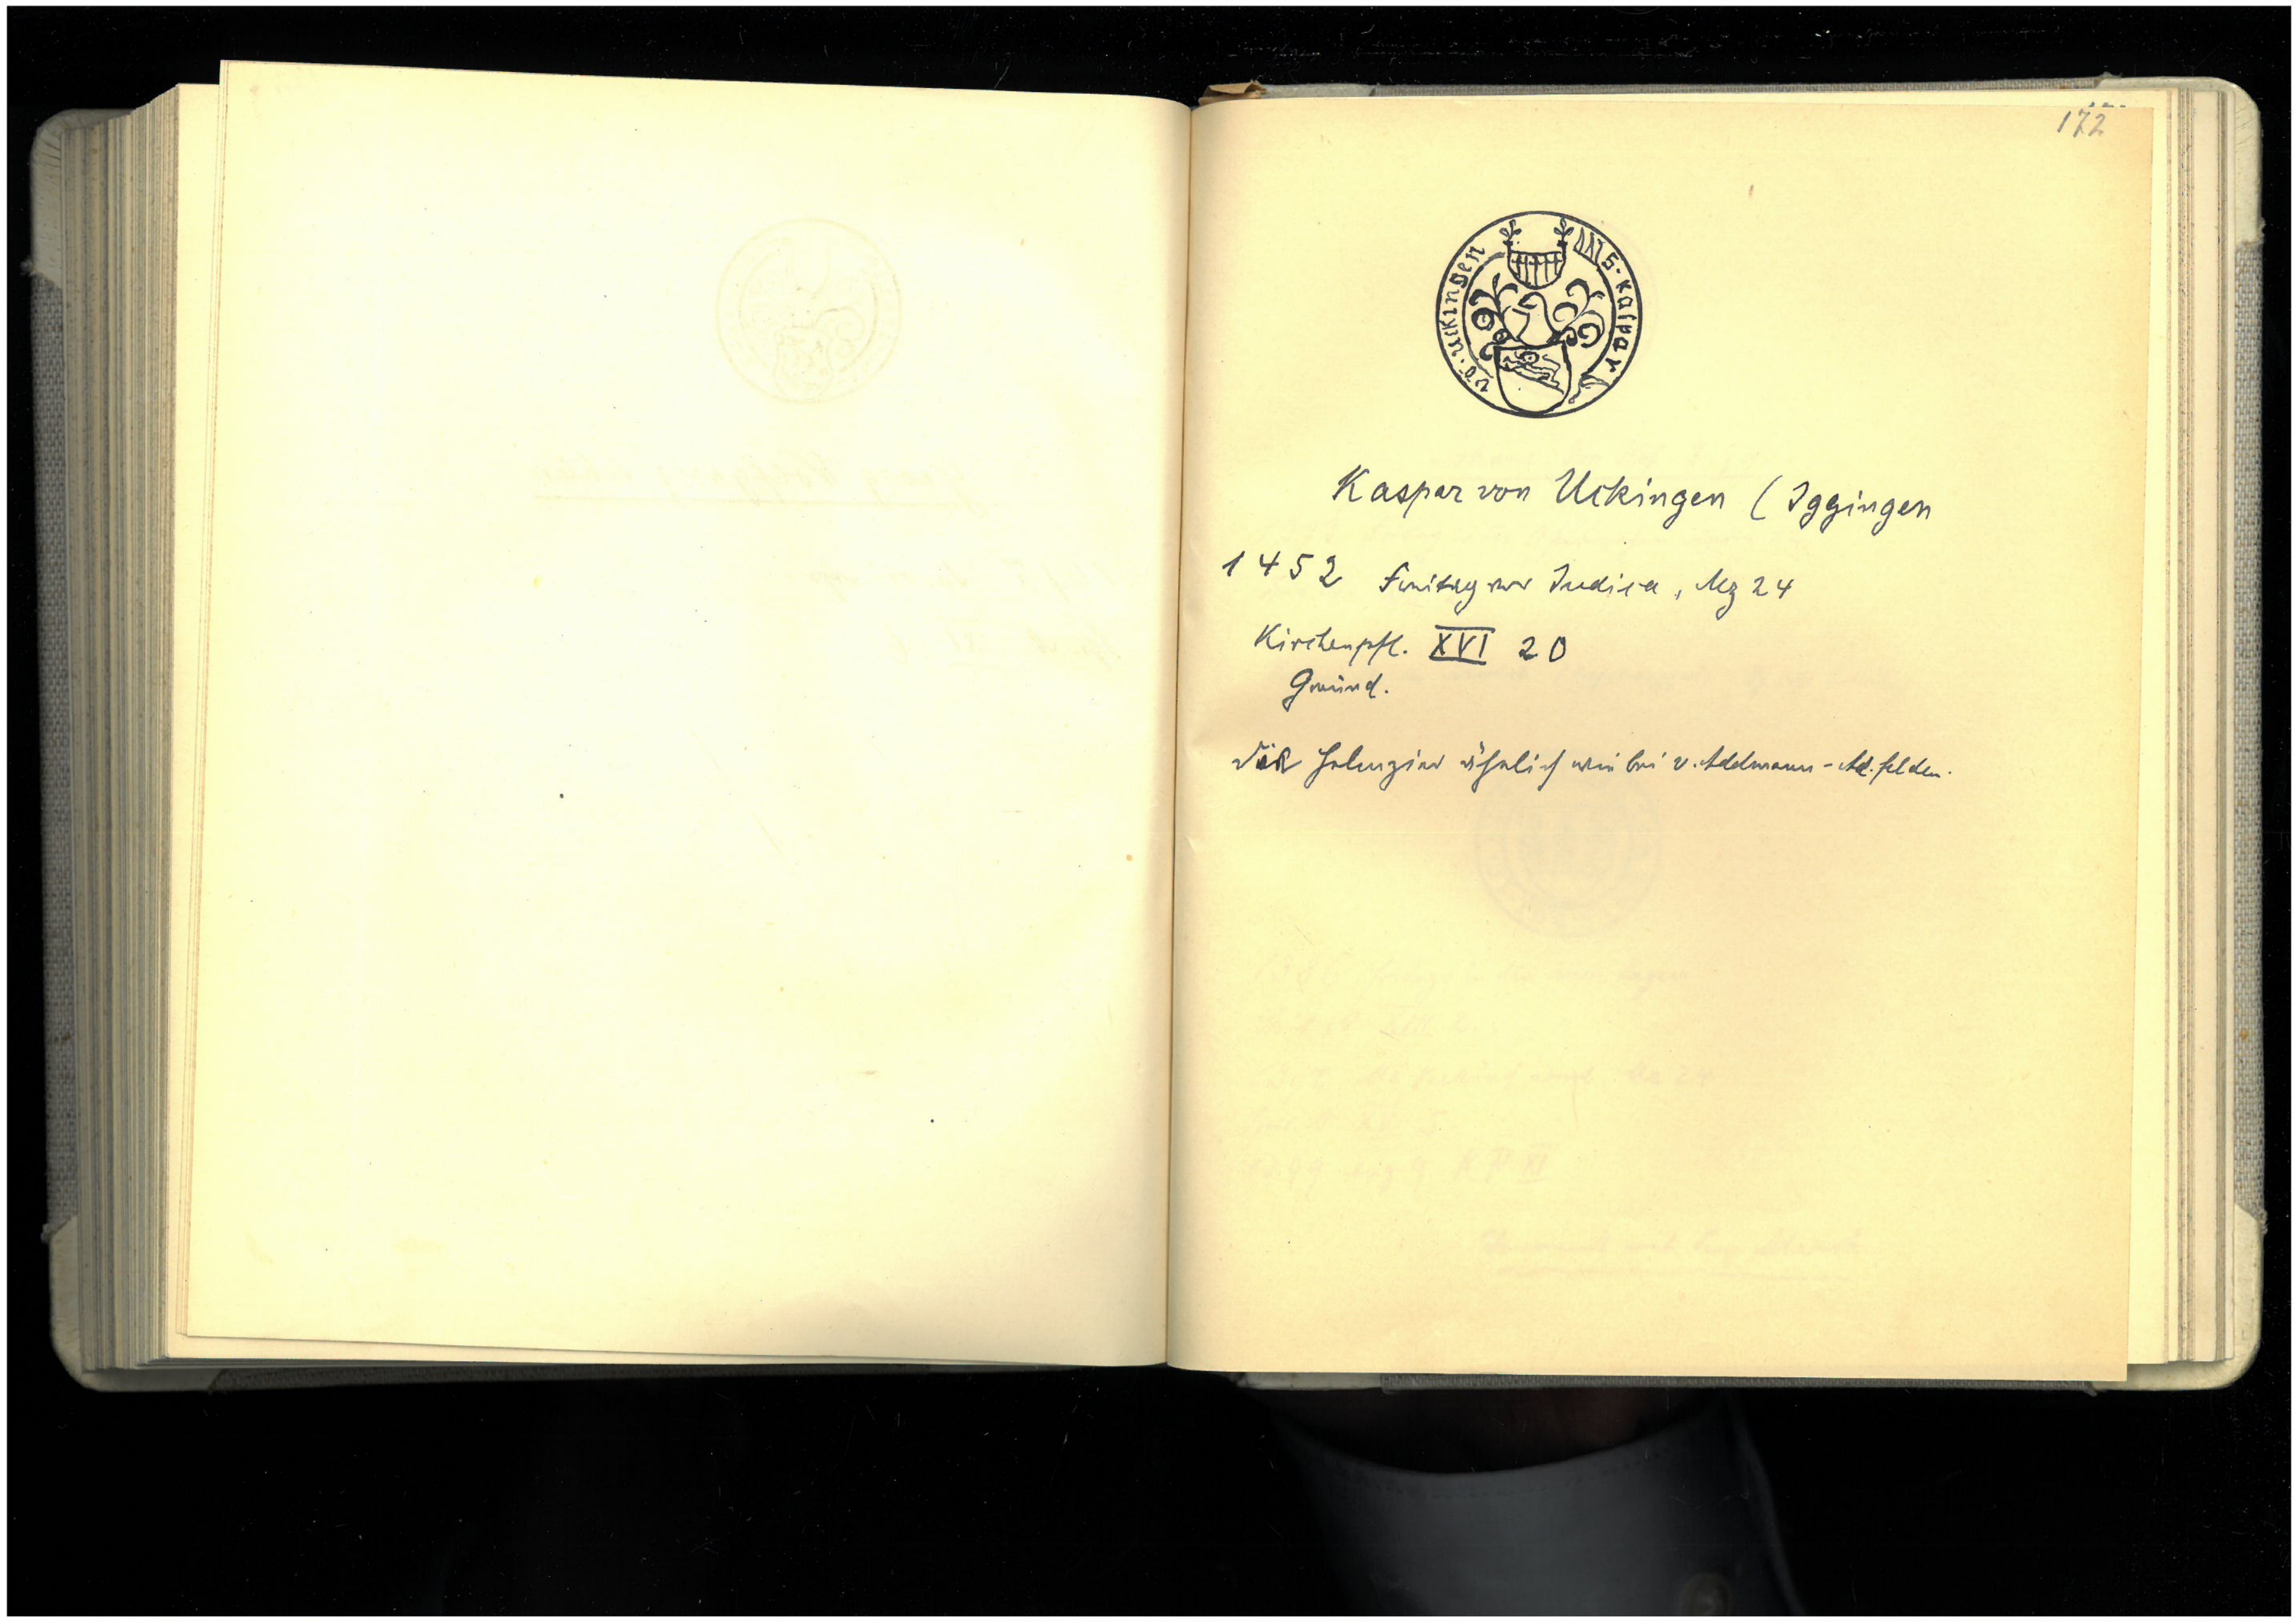 172
S. Kaspar
vo. uckingen
Kaspar von Uckingen ( Iggingen
1452 Freitag vor Iudica, Mz 24
Kirchenpfl. XVI 20
Gmünd.
Die Helmzier ähnlich wie bei v. Adelmann-Ad.felden.